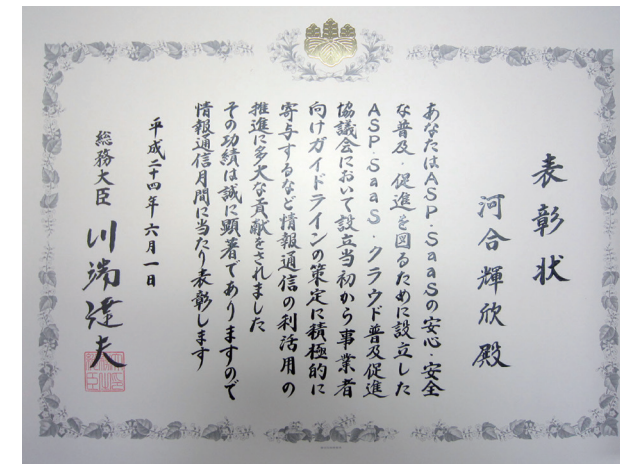 表彰状
河合輝欣殿
あなたはASP・SaaSの安心・安全
な普及・促進を図るために設立した
ASP・SaaS・クラウド普及促進
協議会において設立当初から事業者
向けガイドラインの策定に積極的に
寄与するなど情報通信の利活用の
推進に多大な貢献をされました
その功績は誠に顕著でありますので
情報通信月間に当たり表彰します
平成二十四年六月一日
総務大臣 川端達夫